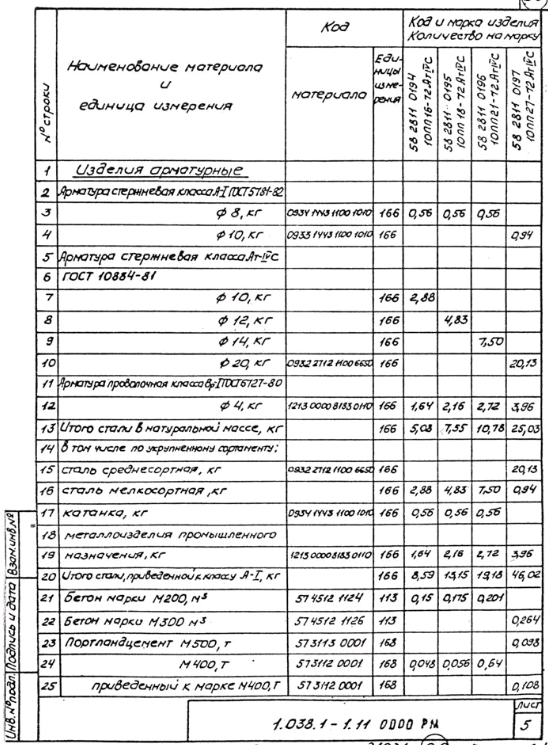 № строки
Наименование материала
и
единица измерения
Код
материала
Еди-
ницы
изме-
рения
Код и марка изделия
Количество на марку
58 2811 0194
10ПП16-72.АтIVС
58 2811 0195
10ПП18-72.АтIVС
58 2811 0196
10ПП21-72.АтIVС
58 2811 0197
10ПП27-72.АтIVС
1 Изделия арматурные
2 Арматура стержневая класса А-I ГОСТ 5781-82
3 ϕ 8, кг 0934 1443 1100 1010 166 0,56 0,56 0,56
4 ϕ 10, кг 0933 1443 1100 1010 166 0,94
5 Арматура стержневая класса Ат-IVС
6 ГОСТ 10884-81
7 ϕ 10, кг 166 2,88
8 ϕ 12, кг 166 4,83
9 ϕ 14, кг 166 7,50
10 ϕ 20, кг 0932 2712 1100 6650 166 20,13
11 Арматура проволочная класса Вр-I ГОСТ 6727-80
12 ϕ 4, кг 1213 0000 8183 0110 166 1,64 2,16 2,72 3,96
13 Итого стали в натуральной массе, кг 166 5,08 7,55 10,78 25,03
14 В том числе по укрупненному сортаменту:
15 сталь среднесортная, кг 0932 2712 1100 6650 166 20,13
16 сталь мелкосортная, кг 166 2,88 4,83 7,50 0,94
17 катанка, кг 0934 1443 1100 1010 166 0,56 0,56 0,56
18 металлоизделия промышленного
19 назначения, кг 1213 0000 8183 0110 166 1,64 2,16 2,72 3,96
20 Итого стали, приведенной к классу А-I, кг 166 8,59 13,15 19,18 46,02
21 Бетон марки М200, м³ 574512 1124 113 0,15 0,175 0,201
22 Бетон марки М300 м³ 574512 1126 113 0,264
23 Портландцемент М500, т 573113 0001 168 0,098
24 М400, т 573112 0001 168 0,048 0,056 0,64
25 приведенный к марке М400, т 573112 0001 168 0,108
Инв. № подл. Подпись и дата Взам. инв. №
1.038.1-1.11 0000 РМ
Лист
5